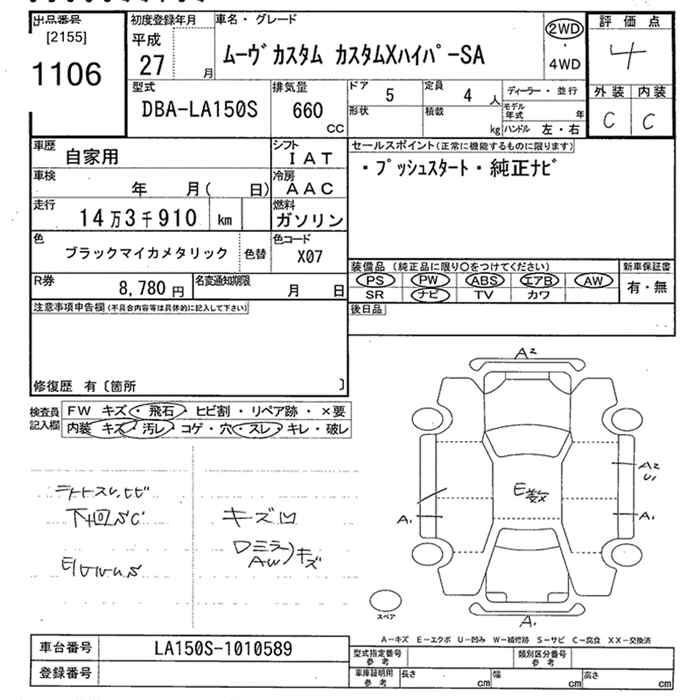 出品番号 初度登録年月 車名・グレード 評価点
[2155] 平成 ムーヴカスタム カスタムXハイパーSA 2WD・4WD 4
1106 27 月
型式 排気量 ドア 定員 ディーラー・並行 外装 内装
DBA-LA150S 660 CC 5 4 人 C C
形状 積載 kg モデル年式 年
ハンドル 左・右
車歴 自家用 シフト IAT セールスポイント(正常に機能するものに限ります)
車検 年 月( 日) 冷房 AAC ・プッシュスタート・純正ナビ
走行 14万3千910 km 燃料 ガソリン
色 ブラックマイカメタリック 色替 色コード X07
装備品(純正品に限り○をつけてください) 新車保証書
R券 8,780円 名変通知期限 月 日 PS PW ABS エアB AW 有・無
SR ナビ TV カワ
注意事項申告欄(不具合内容等は具体的に記入して下さい) 後日品
修復歴 有〔箇所 〕
検査員記入欄 FW キズ・飛石・ヒビ割・リペア跡・×要
内装 キズ・汚レ・コゲ・穴・スレ・キレ・破レ
A2
A2
U1
E数
A1 A1
下回SC キズ凹
Dミラー キズ
AW
スペア A1
A-キズ E-エクボ U-凹み W-補修跡 S-サビ C-腐食 XX-交換済
車台番号 LA150S-1010589 型式指定番号 参考 類別区分番号 参考
登録番号 車庫証明用 参考 長さ cm 幅 cm 高さ cm